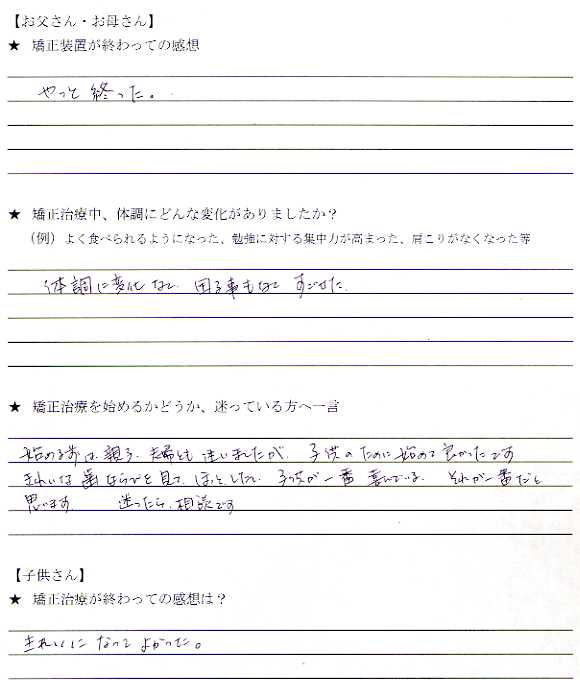 【お父さん・お母さん】
★ 矯正装置が終わっての感想
やっと 終った。
★ 矯正治療中、体調にどんな変化がありましたか？
（例）よく食べられるようになった、勉強に対する集中力が高まった、肩こりがなくなった等
体調に変化なく 困る事もなく すごせた。
★ 矯正治療を始めるかどうか、迷っている方へ一言
始める前は、親子、夫婦とも迷いましたが、子供のために始めて良かったです
きれいな歯ならびを見て、ほっとした。子供が一番 喜んでいる。 それが一番だと
思います。 迷ったら、相談です
【子供さん】
★ 矯正治療が終わっての感想は？
きれいに なって よかった。